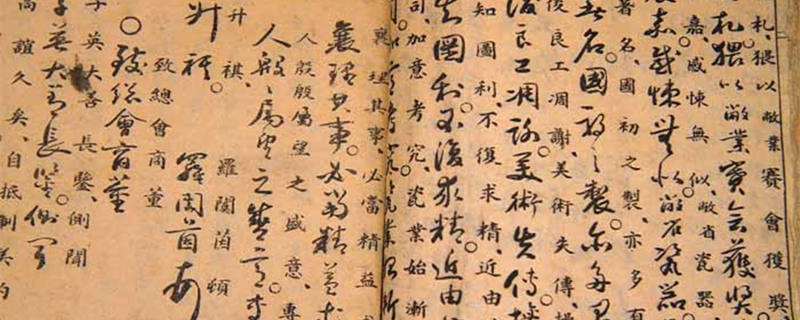 札、猥以敝業賽會獲獎、
札、猥以敝業賽會獲獎
嘉、感悚無似、敝省瓷器、
嘉感悚無似敝省瓷器
著名、國初之製、亦多有
著名。國初之製。亦多
後良工凋謝、美術失傳、
後良工凋謝。美術失傳。
知圖利、不復求精、近由
知圖利不復求精。近由
司、加意考究、瓷業始漸
司加意考究瓷業始漸
襄理其事、必當精益
襄理其事。必當精益求
人殷殷屬望之盛意、專
人殷殷屬望之盛意。專
升祺、 羅閩茵頓
升祺 羅閩茵頓
致總會商董
○致總會商董
英大善長鑒、側聞
英大善長鑒。側聞
高誼久矣、自抵制美約